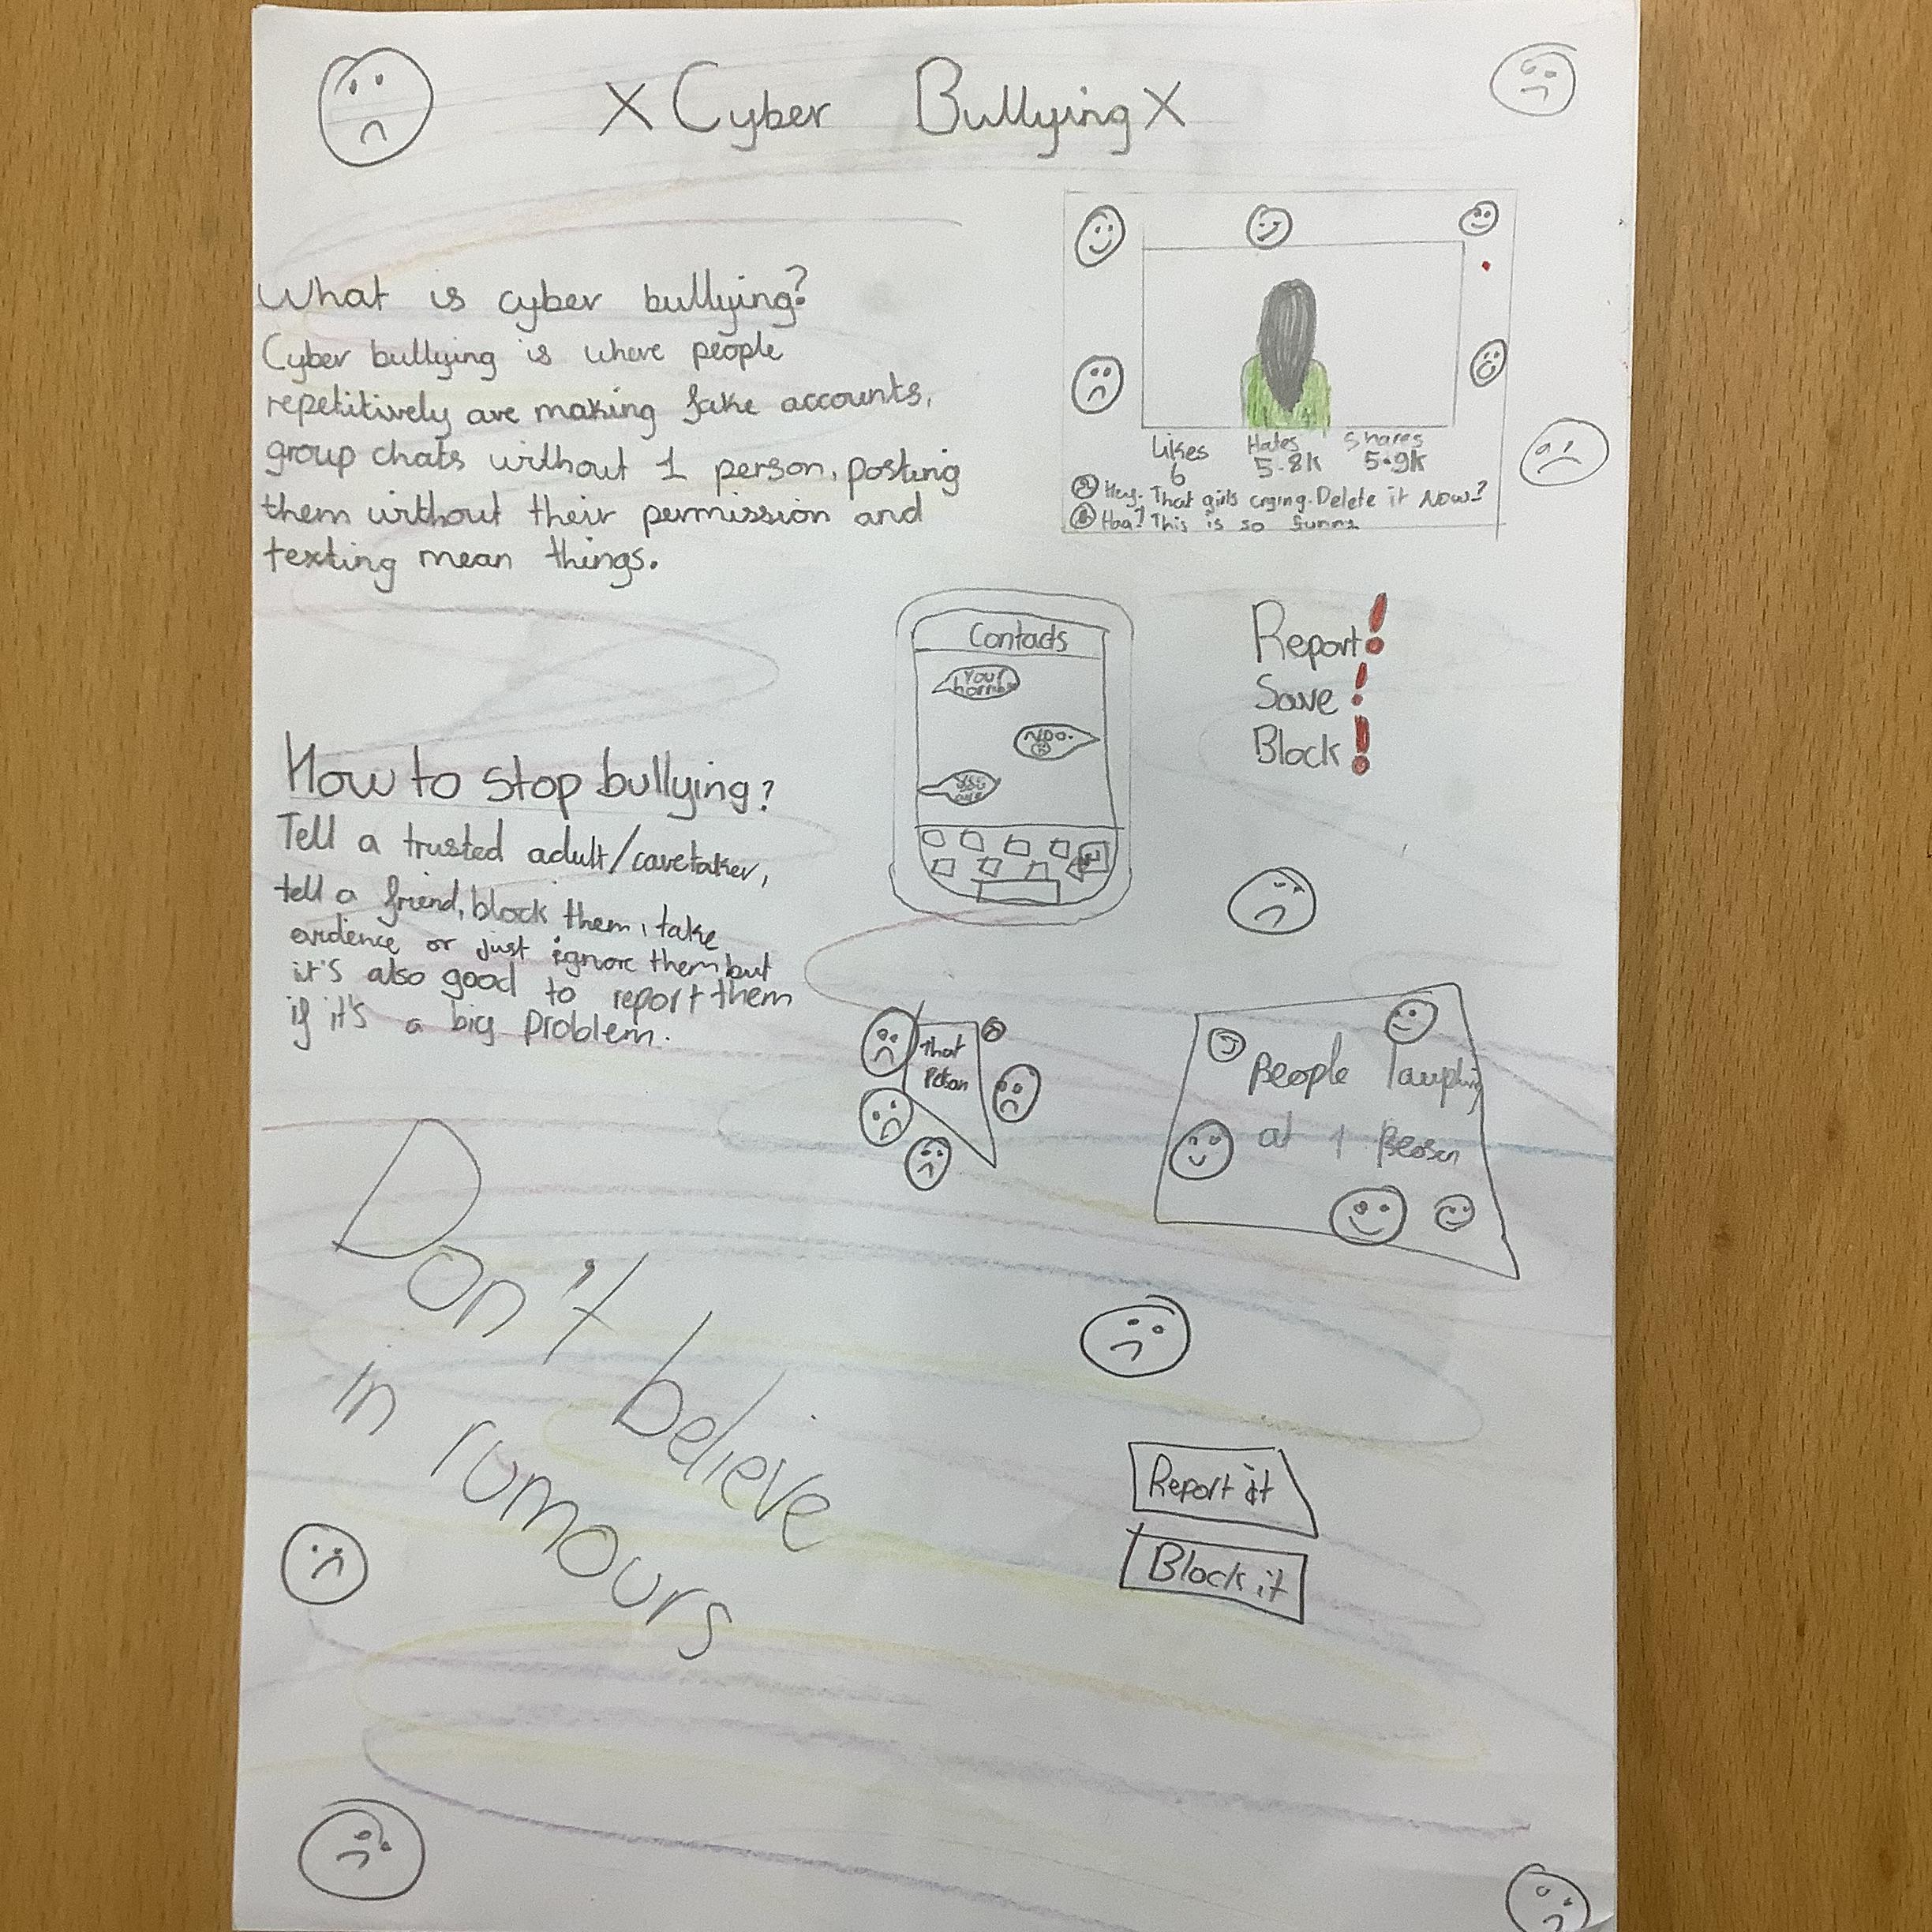 X Cyber Bullying X
What is cyber bullying?
Cyber bullying is where people
repetitively are making fake accounts,
group chats without 1 person, posting
them without their permission and
texting mean things.
Likes Hates Shares
6 5.8K 5.9K
Hey. That girls crying. Delete it Now?
Haa? This is so funny
Contacts
Your
NOO.
Report!
Save!
Block!
How to stop bullying?
Tell a trusted adult/caretaker,
tell a friend, block them, take
evidence or just ignore them but
it's also good to report them
if it's a big problem.
That
Person
People laughing
at 1 Person
Don't believe
in rumours
Report it
Block it